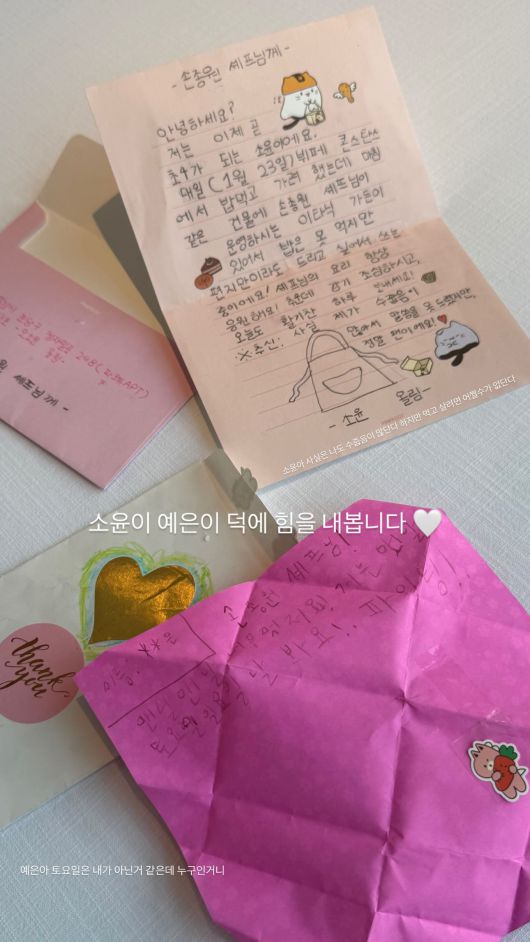 - 손종원 셰프님께 -
안녕하세요?
저는 이제 곧
초4가 되는 소윤이에요.
내일(1월 23일) 뷔페 콘스탄스
에서 밥먹고 가려 했는데 마침
같은 건물에 손종원 셰프님이
운영하시는 이타닉 가든이
있어서 밥은 못 먹지만
편지만이라도 드리고 싶어서 쓰는
중이에요! 셰프님의 요리 항상
응원해요! 추운데 감기 조심하시고,
오늘도 활기찬 하루 보내세요!
※추신: 사실 제가 수줍음이
많아서 말씀을 못 드렸지만,
정말 팬이에요!
- 소윤 올림 -
소윤아 사실은 나도 수줍음이 많단다 하지만 먹고 살려면 어쩔수가 없단다
셰프님께 -
소윤이 예은이 덕에 힘을 내봅니다 🤍
thank
you
이름:
손종원 셰프님!
저는
파이팅!
맨날맨날
토요일
봐요!
예은아 토요일은 내가 아닌거 같은데 누구인거니